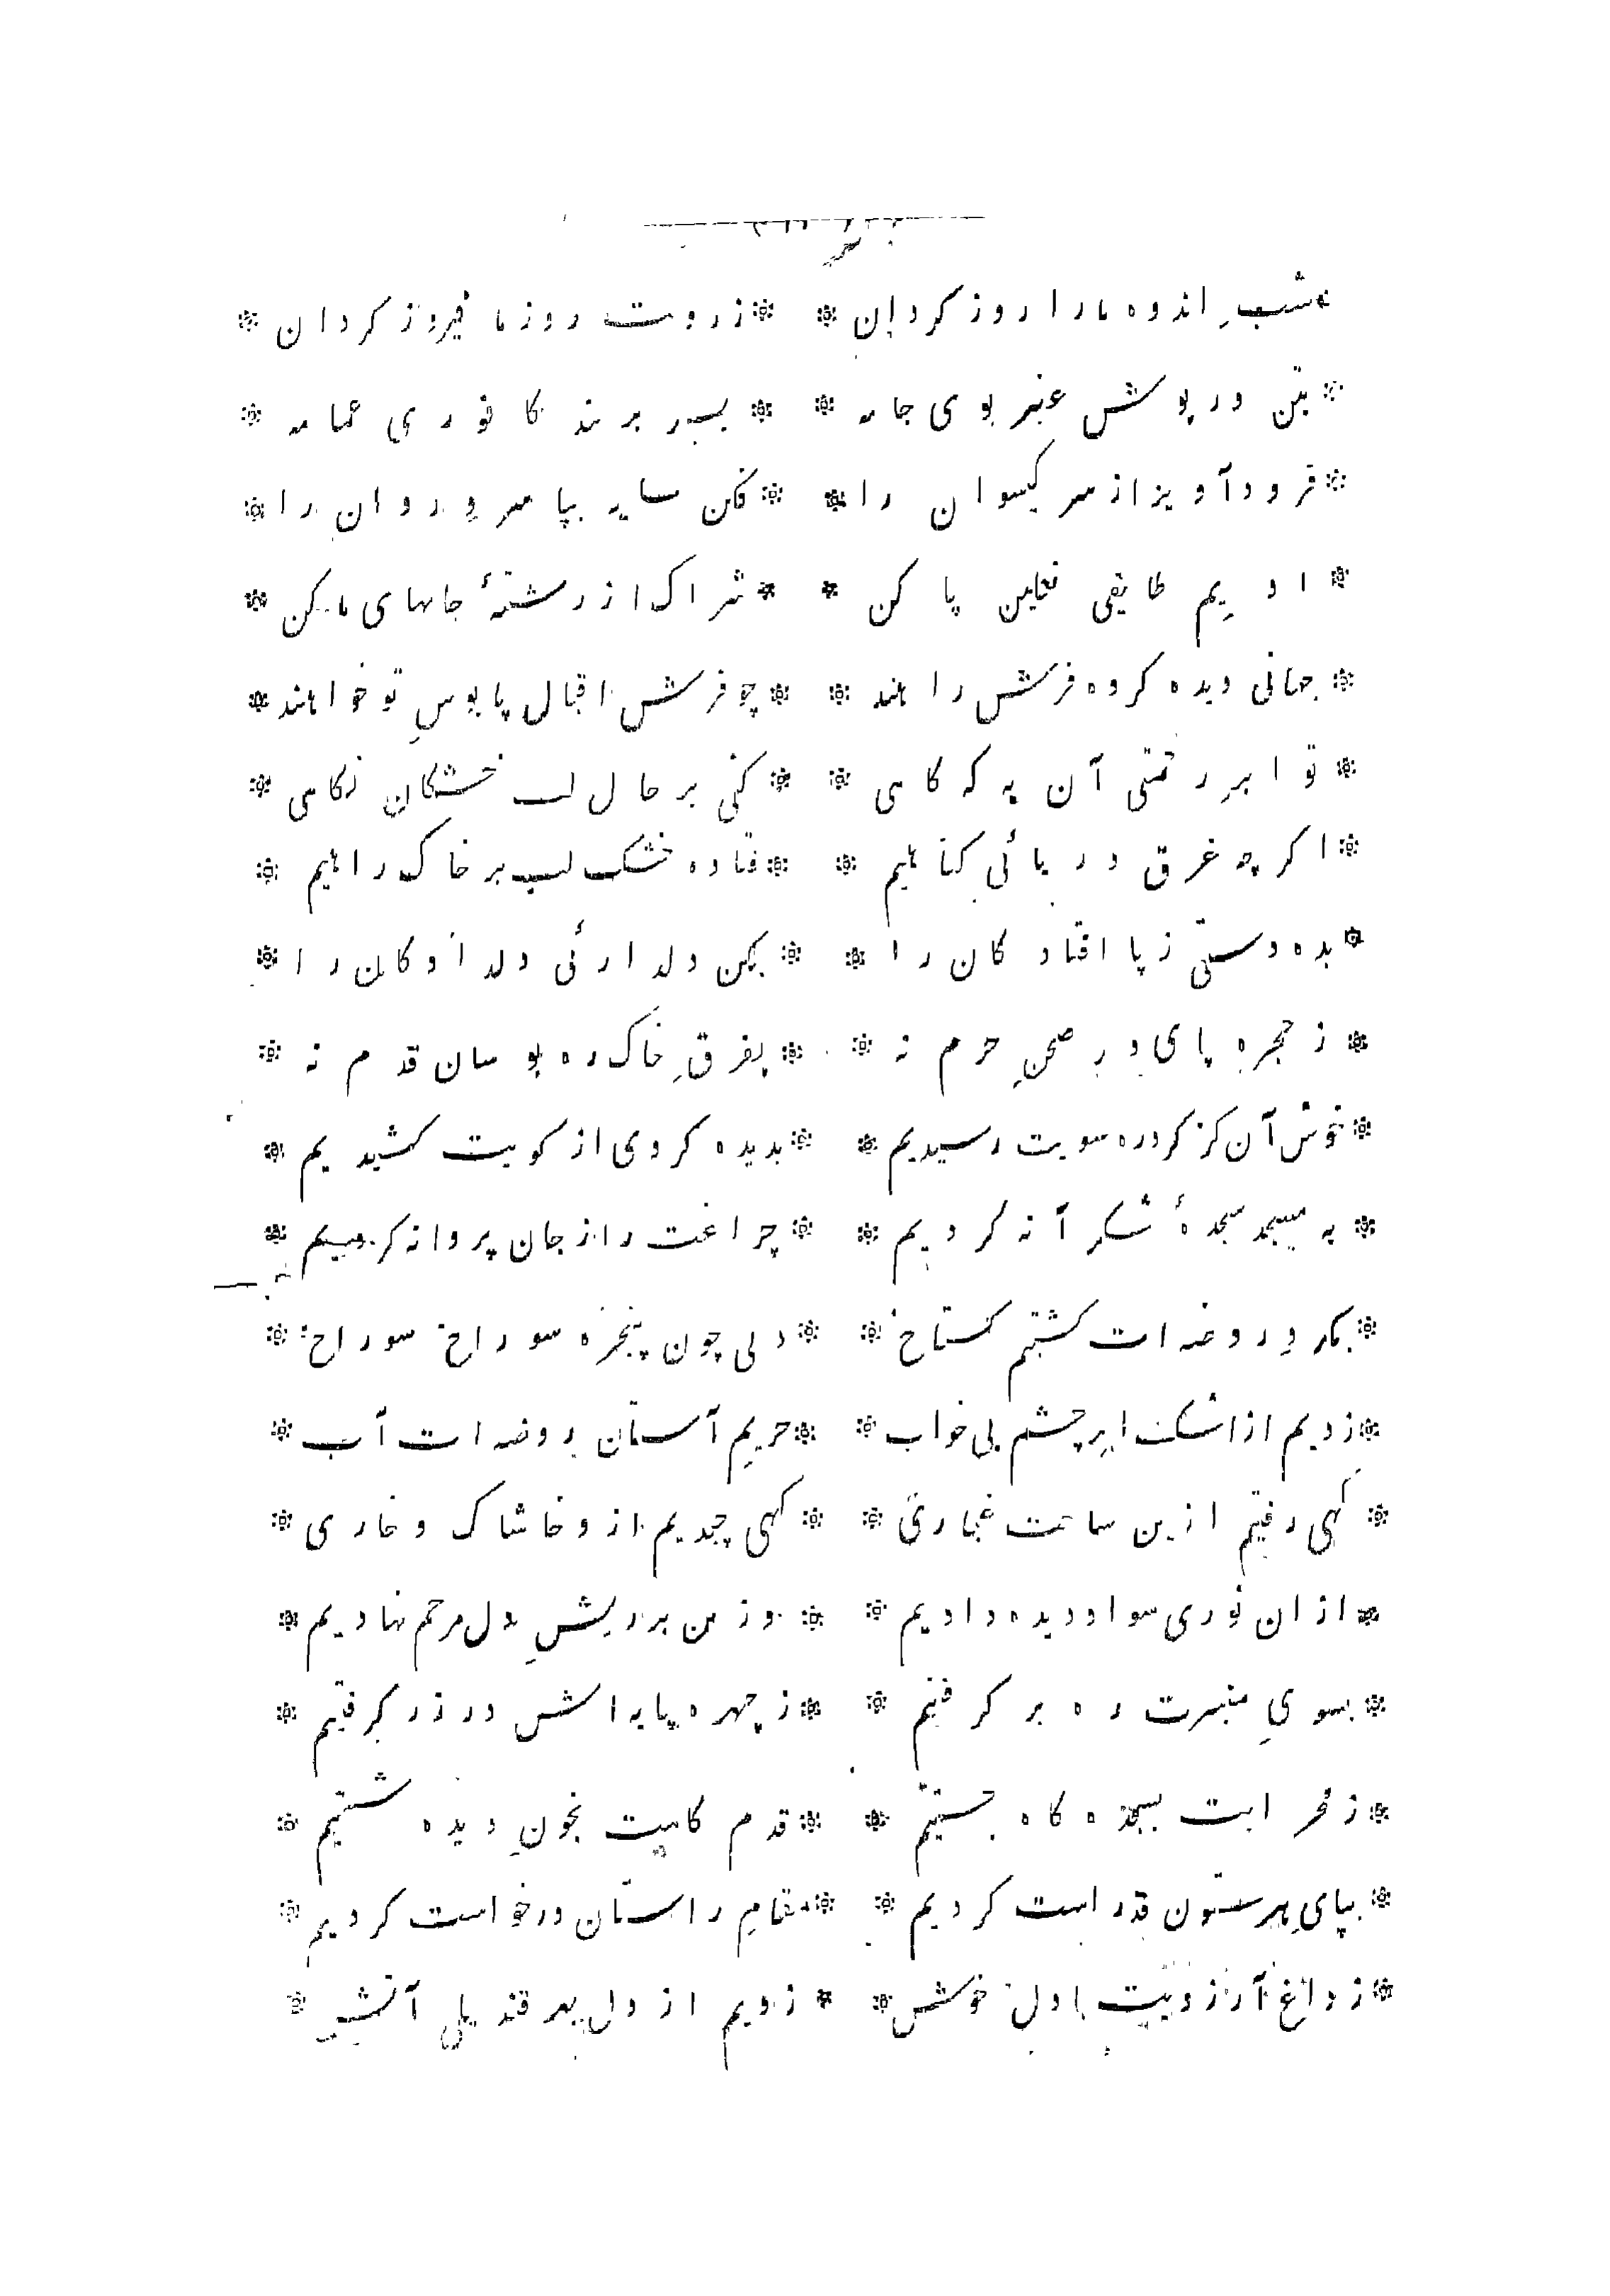 * شبِ اندوه ما را روز کردان * * ز رویت روز ما فیروز کردان *
* بتن در پوش عنبر بوی جامه * * بسر بر بند کافوری عمامه *
* فرود آویز از سر کیسوان را * * فکن سایه بپا سرو روان را *
* ادیم طایفی نعلین پا کن * * شراک از رشتهٔ جانهای ما کن *
* جهانی دیده کرده فرش راهند * * چو فرش اقبال پابوسِ تو خواهند *
* تو ابرِ رحمتی آن به که کاهی * * کنی بر حال لب خشکان نکاهی *
* اکر چه غرق دریائی کناهیم * * فتاده خشک لب بر خاک راهیم *
* بده دستی ز پا افتاد کان را * * بکن دلدارئی دلداد کان را *
* ز حجره پای در صحنِ حرم نه * * بفرقِ خاک ره بوسان قدم نه *
* خوش آن کز کرد ره سویت رسیدیم * * بدیده کردی از کویت کشیدیم *
* به مسجد سجدهٔ شکرآنه کردیم * * چراغت را ز جان پروانه کردیم *
* بکرد روضه ات کشتیم کستاخ * * دلی چون پنجره سوراخ سوراخ *
* زدیم از اشک ابرِ چشم بی خواب * * حریمِ آستان روضه ات آب *
* کهی رفتیم ازین ساحت غباری * * کهی چیدیم ازو خاشاک و خاری *
* ازان نوری سواد دیده دادیم * * وزین بر ریشِ دل مرحم نهادیم *
* بسویِ منبرت ره بر کرفتیم * * ز چهره پایه اش در زر کرفتیم *
* ز محرابت بسجده کاه جستیم * * قدم کاهت بخونِ دیده شستیم *
* بپایِ هر ستون قد راست کردیم * * مقامِ راستان درخواست کردیم *
* ز داغ آرزویت با دل خوش * * زدیم از دل بهر قندیل آتش *